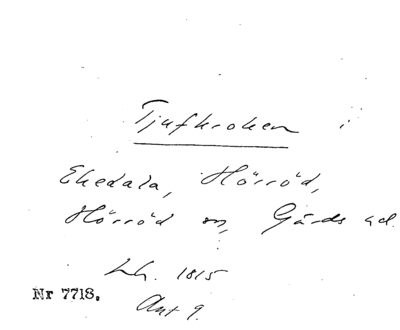 Tjufkroken i
Ekedala, Hörröd,
Hörröd sn, Gärds hd.
Lh. 1815
Nr 7718.
Akt 9.